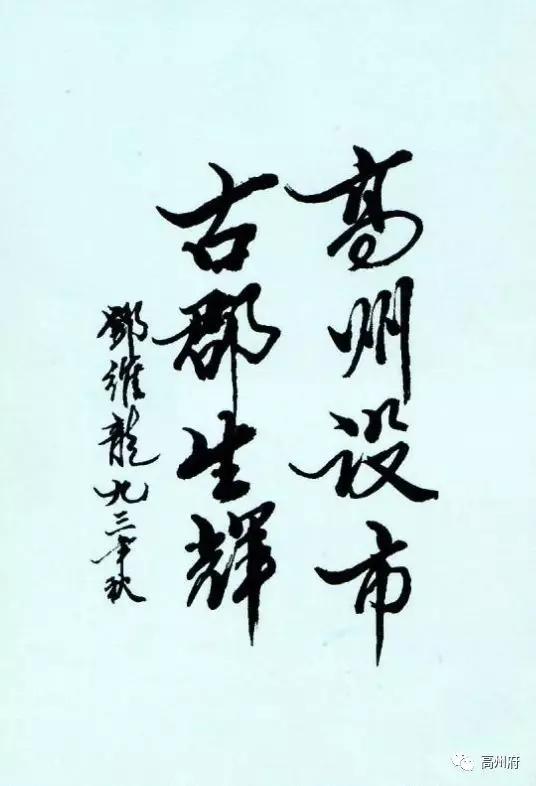 高州设市
古郡生辉
邓维龙九三年秋
高州府